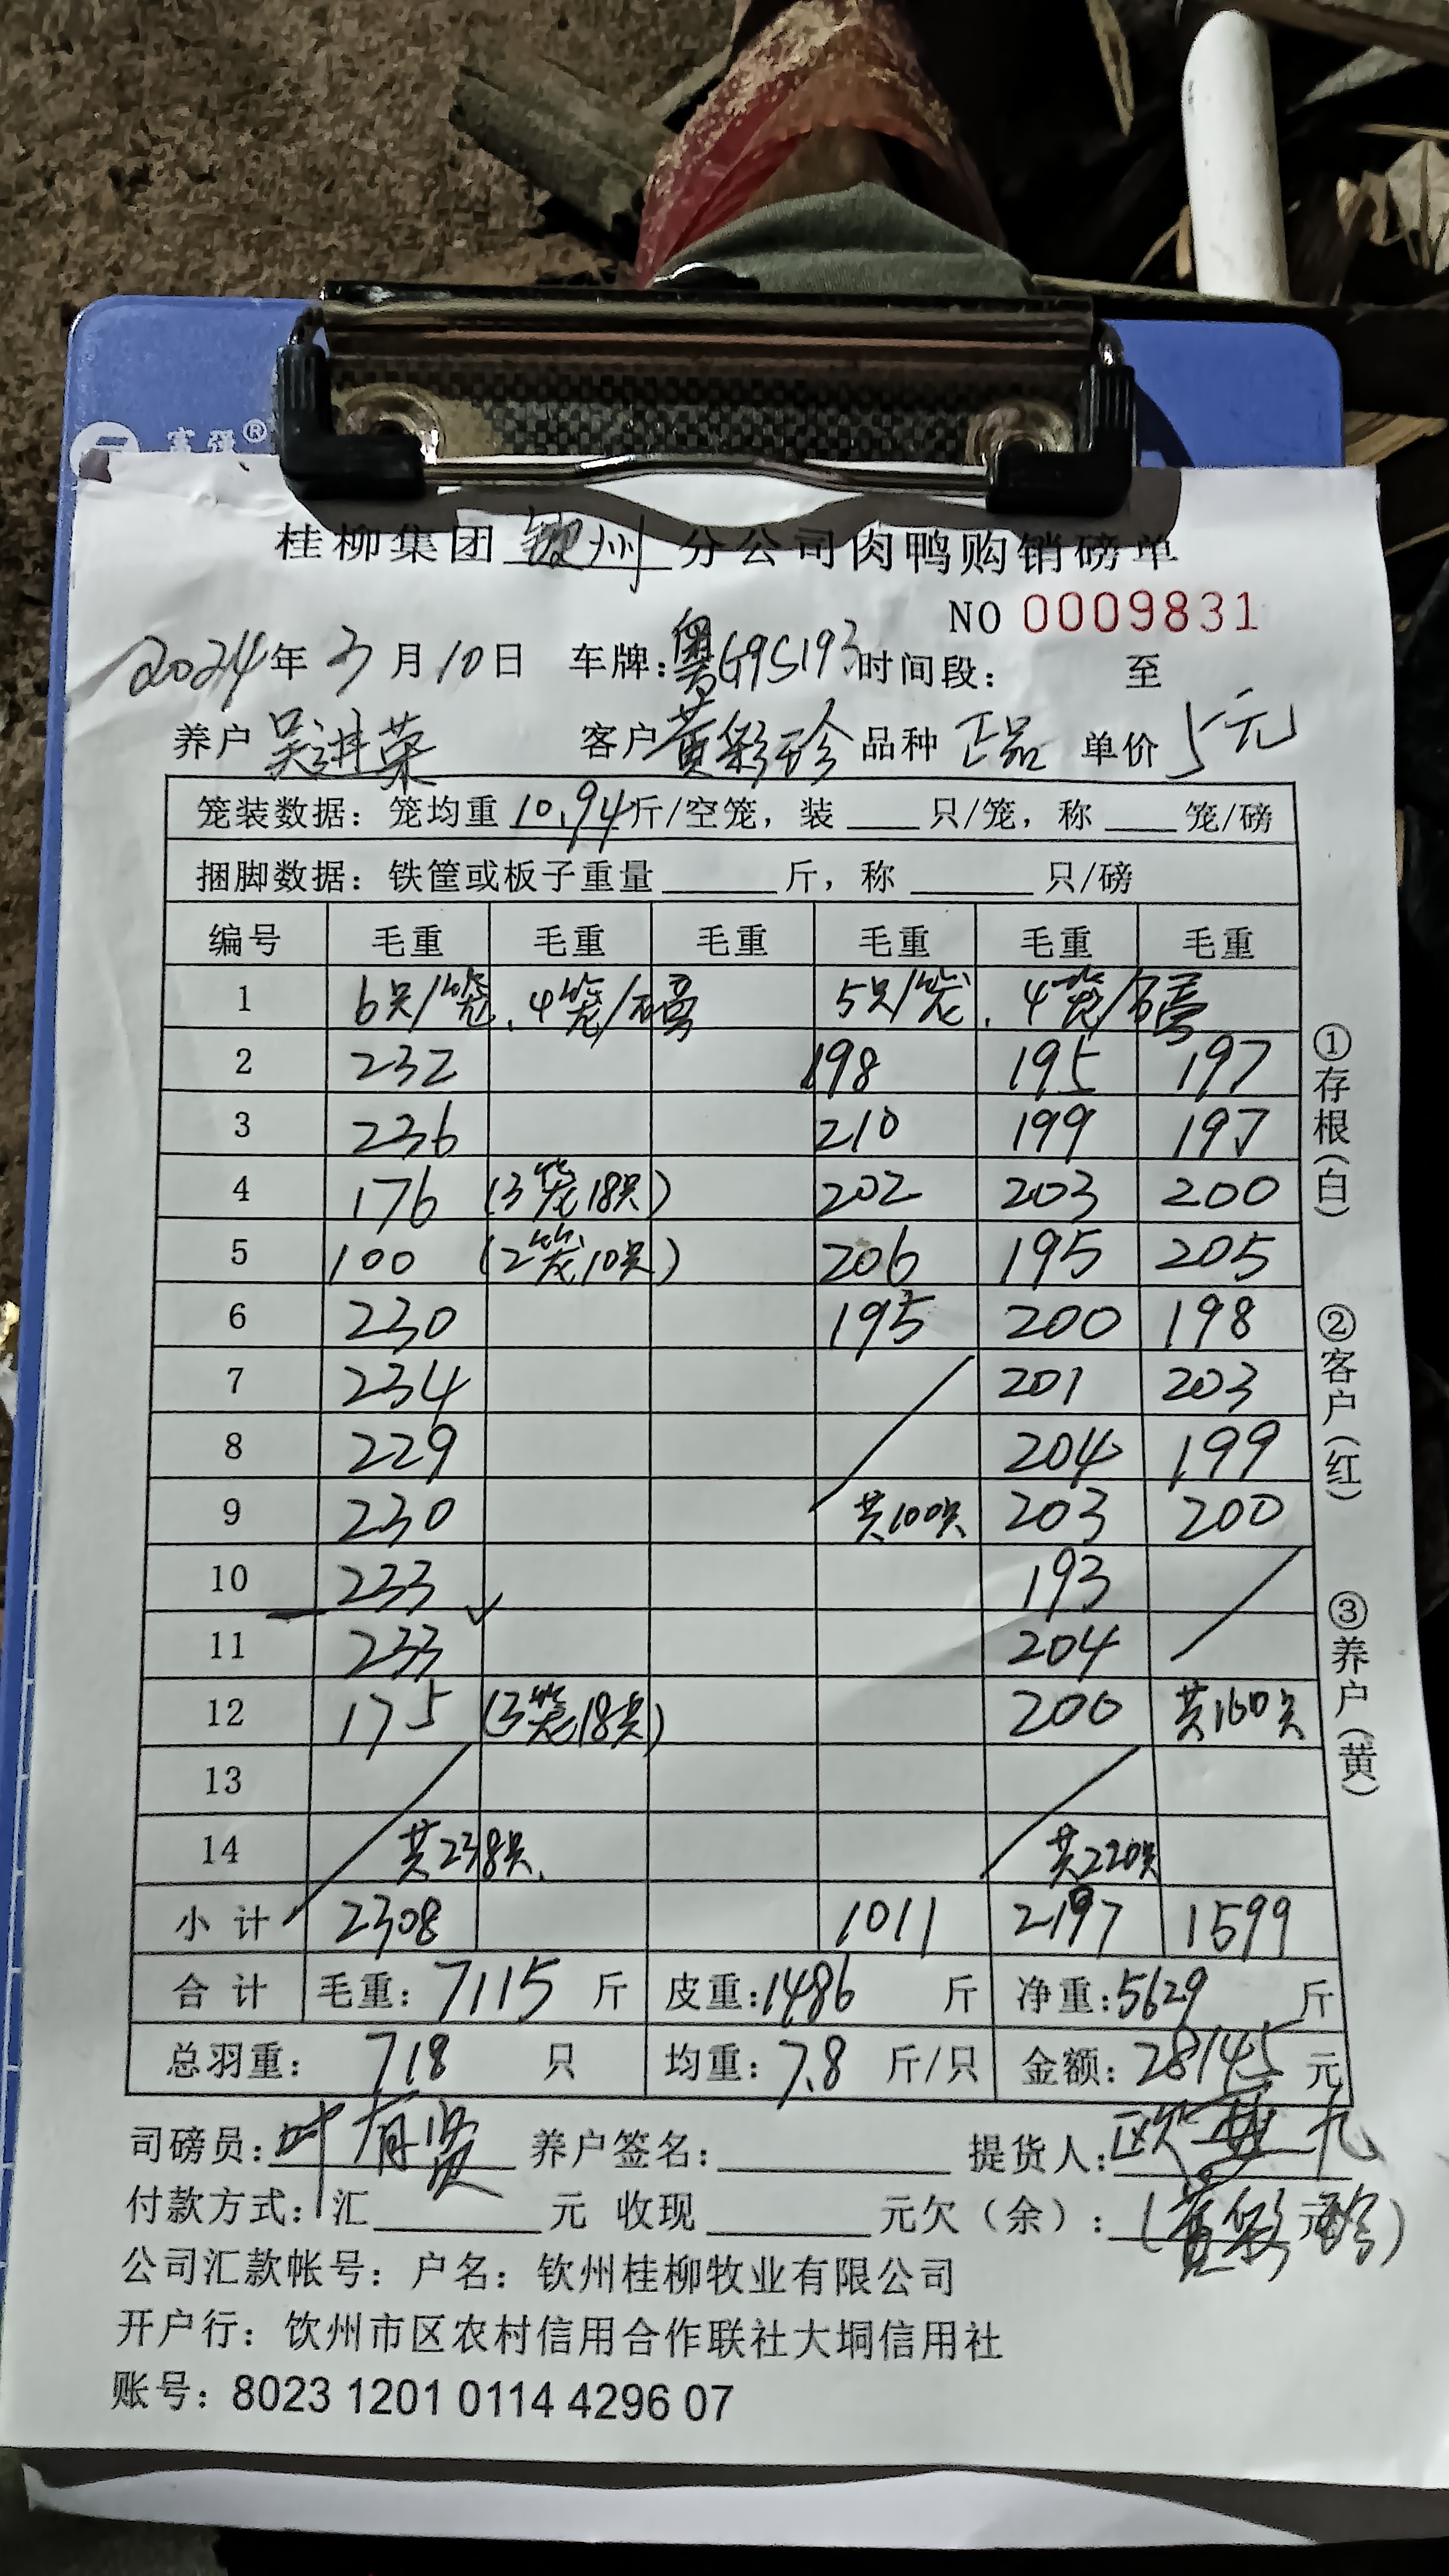 富强®
桂柳集团 钦州 分公司肉鸭购销磅单
NO 0009831
2024年 3月10日 车牌:粤G9S193 时间段: 至
养户 吴进荣 客户 黄彩珍 品种 正品 单价 5元
笼装数据: 笼均重 10.94 斤/空笼, 装 只/笼, 称 笼/磅
捆脚数据: 铁筐或板子重量 斤, 称 只/磅
编号 毛重 毛重 毛重 毛重 毛重 毛重
1 6只/笼. 4笼/磅 5只/笼. 4笼/磅
2 232 198 195 197
3 236 210 199 197
4 176 (3笼18只) 202 203 200
5 100 (2笼10只) 206 195 205
6 230 195 200 198
7 234 201 203
8 229 204 199
9 230 共100只 203 200
10 233 193
11 233 204
12 175 (3笼18只) 200 共160只
13
14 共238只. 共220只
小计 2308 1011 2197 1599
合计 毛重: 7115 斤 皮重:1486 斤 净重:5629 斤
总羽重: 718 只 均重: 7.8 斤/只 金额: 28145 元
司磅员: 叶有贤 养户签名: 提货人:
付款方式: 汇 元 收现 元欠(余): 元 (黄彩珍)
公司汇款帐号: 户名: 钦州桂柳牧业有限公司
开户行: 饮州市区农村信用合作联社大垌信用社
账号: 8023 1201 0114 4296 07
①存根(白)
②客户(红)
③养户(黄)